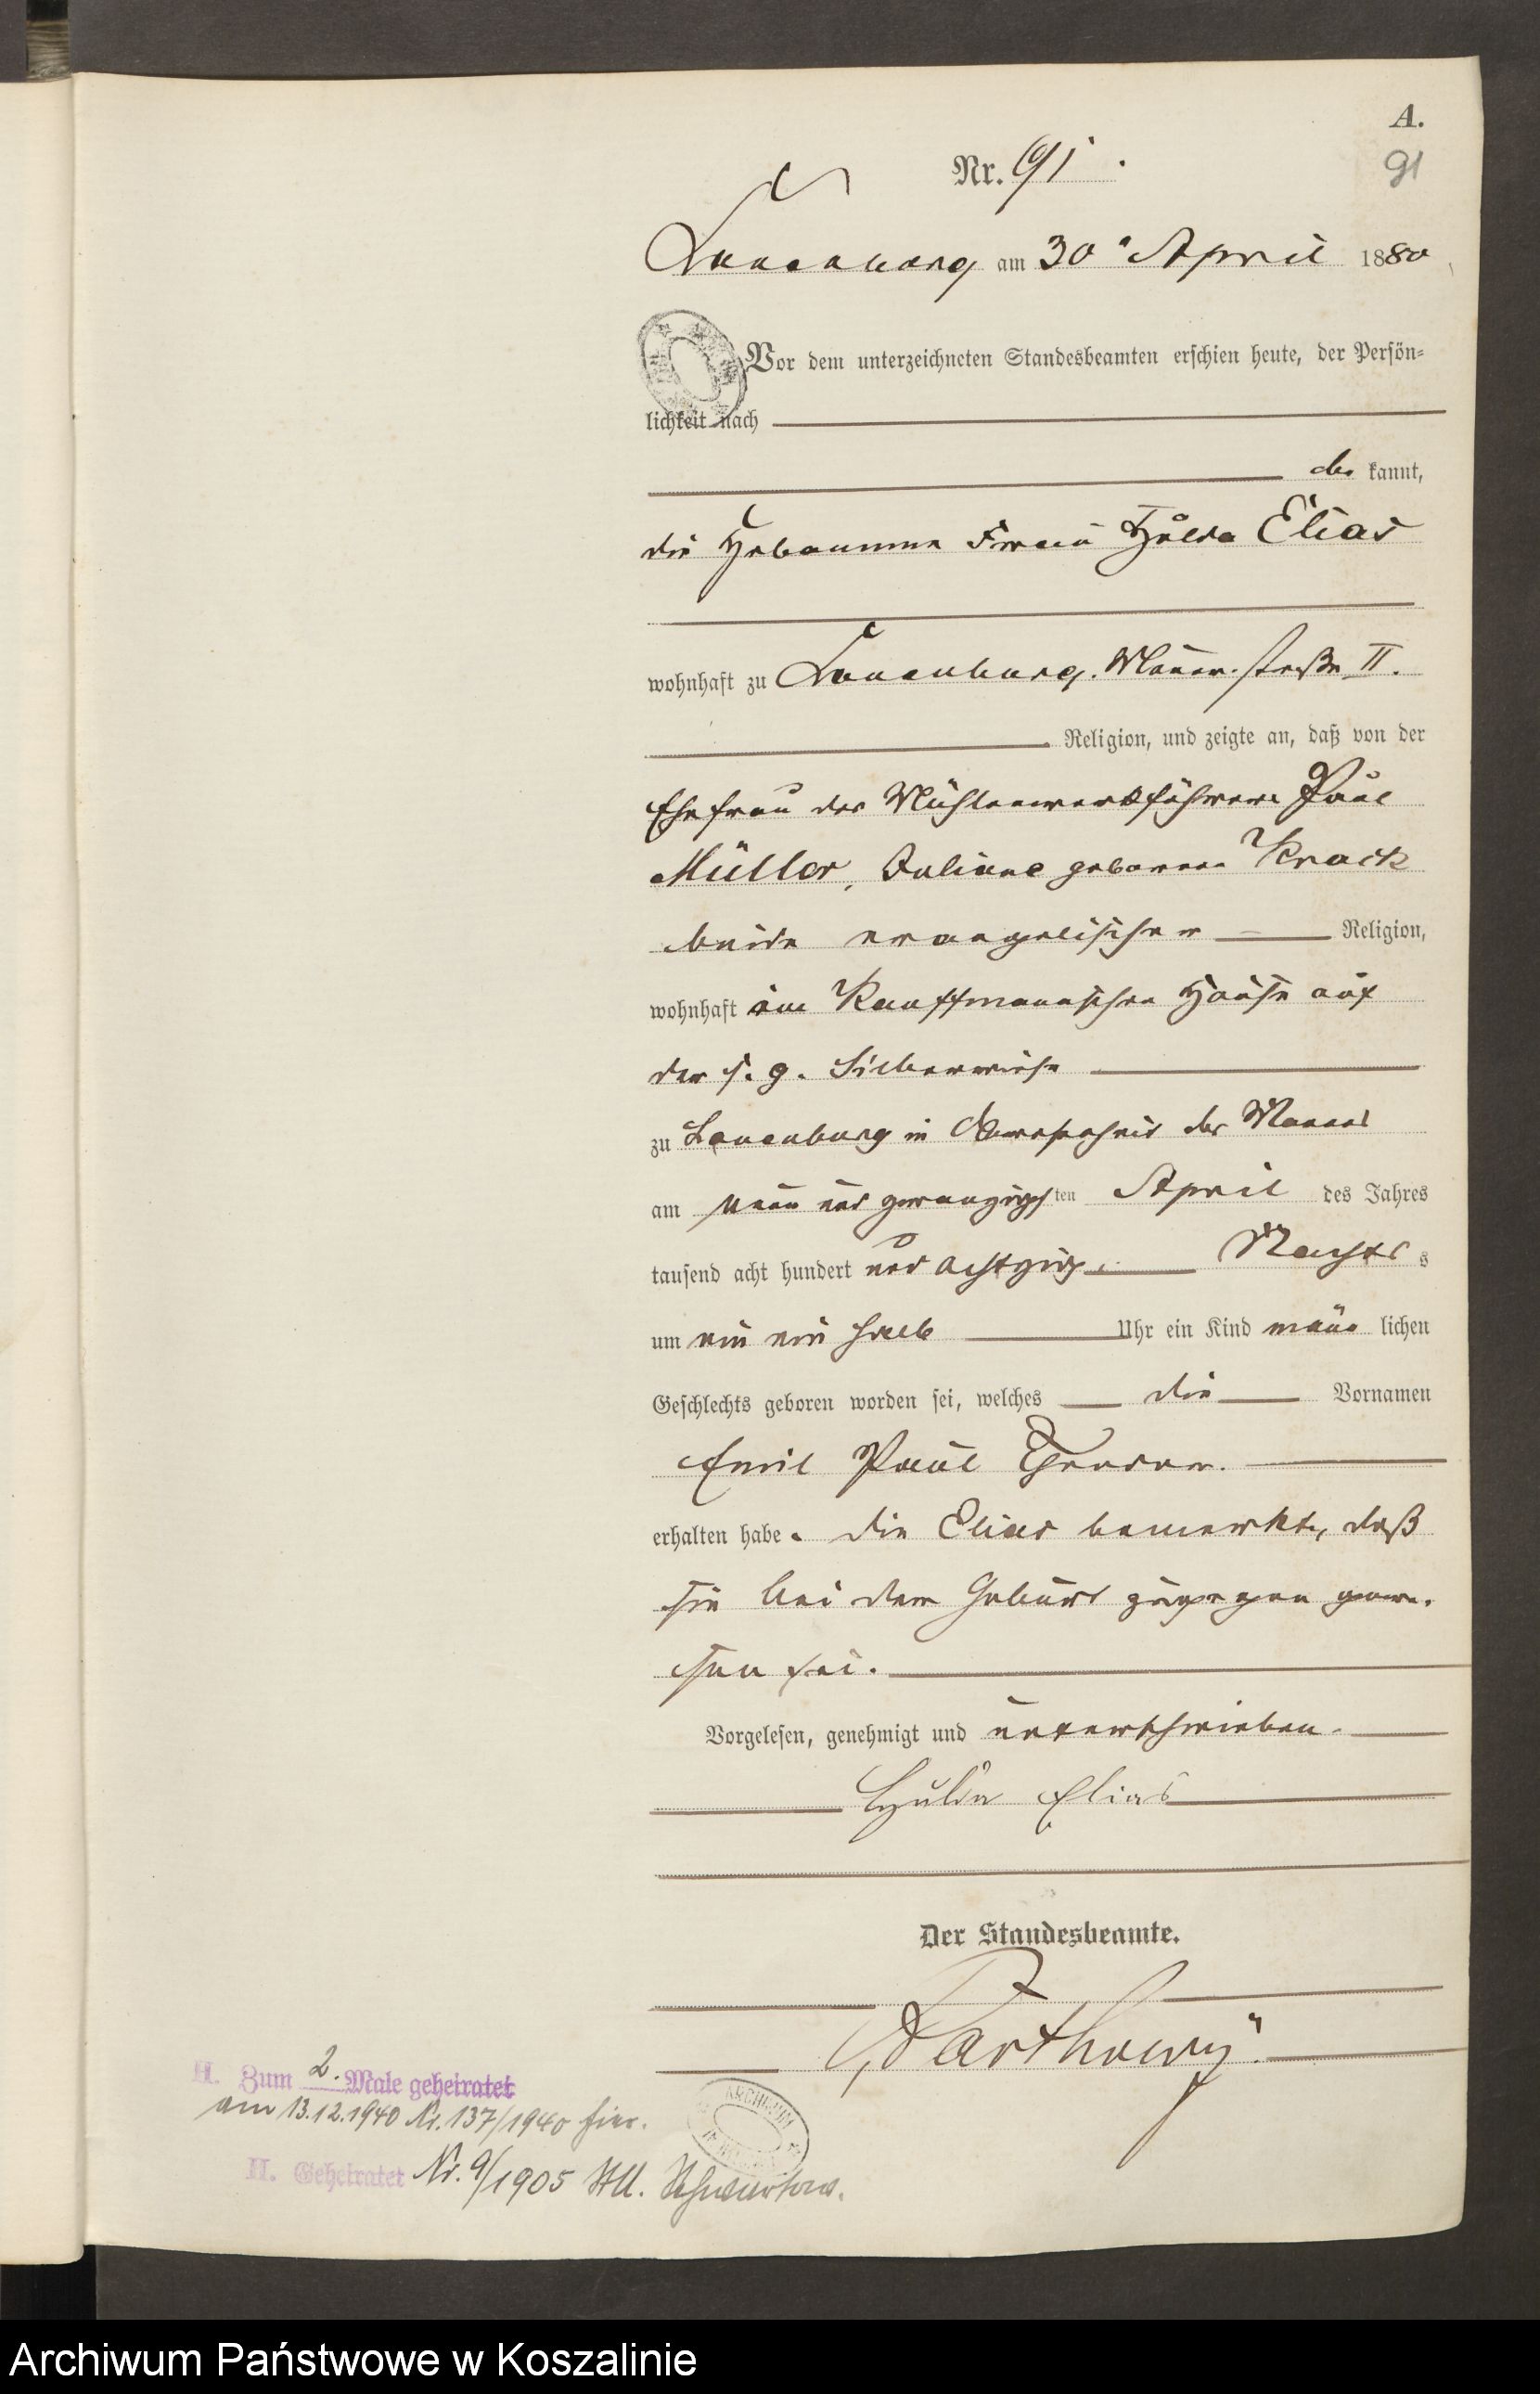 A.
Nr. 91.
91
Lauenburg am 30. April 1880
Vor dem unterzeichneten Standesbeamten erschien heute, der Persön-
lichkeit nach
be kannt,
die Hebamme Frau Hulda Elias
wohnhaft zu Lauenburg. Mauerstraße II.
Religion, und zeigte an, daß von der
Ehefrau des Mühlenwerkführers Paul
Müller, Juliane geborene Krack
beide evangelischer Religion,
wohnhaft im Kauffmannschen Hause auf
der s. g. Silberwiese
zu Lauenburg in des Mannes
am neun und zwanzigsten April des Jahres
tausend acht hundert und achtzig Nachts
um ein ein halb Uhr ein Kind männlichen
Geschlechts geboren worden sei, welches die Vornamen
Emil Paul Theodor.
erhalten habe. Die Elias bemerkte, daß
sie bei der Geburt zugegen gewe-
sen sei.
Vorgelesen, genehmigt und unterschrieben.
Hulda Elias
Der Standesbeamte.
H. Zum 2. Male geheiratet
am 13.12.1940 Nr. 137/1940 hier.
ARCHIWUM
H. Geheiratet Nr. 9/1905
Archiwum Państwowe w Koszalinie